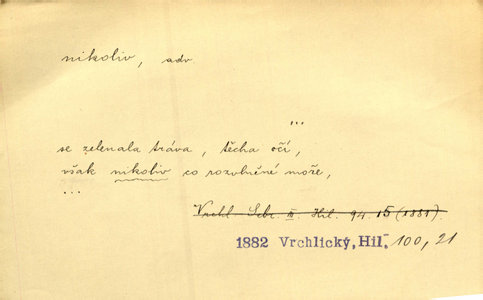 nikoliv, adv
...
se zelenala tráva, těcha očí,
však nikoliv co rozvlněné moře,
...
Vrchl. Sebr. III. Hil. 94. 15 (1881).
1882 Vrchlický, Hil. 100, 21